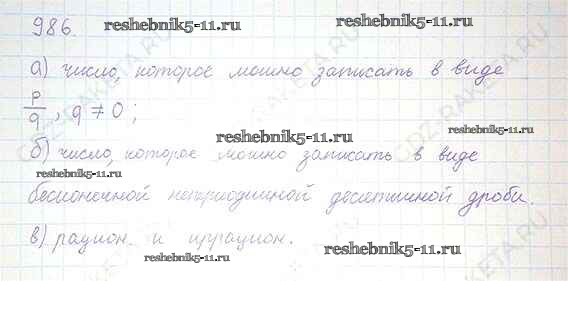 986.
reshebnik5-11.ru
reshebnik5-11.ru
а) число, которое можно записать в виде
p/q, q ≠ 0;
reshebnik5-11.ru
б) число, которое можно записать в виде
reshebnik5-11.ru
бесконечной непериодичной десятичной дроби.
в) рацион. и иррацион.
reshebnik5-11.ru
reshebnik5-11.ru
GDZ-RAKETA.RU